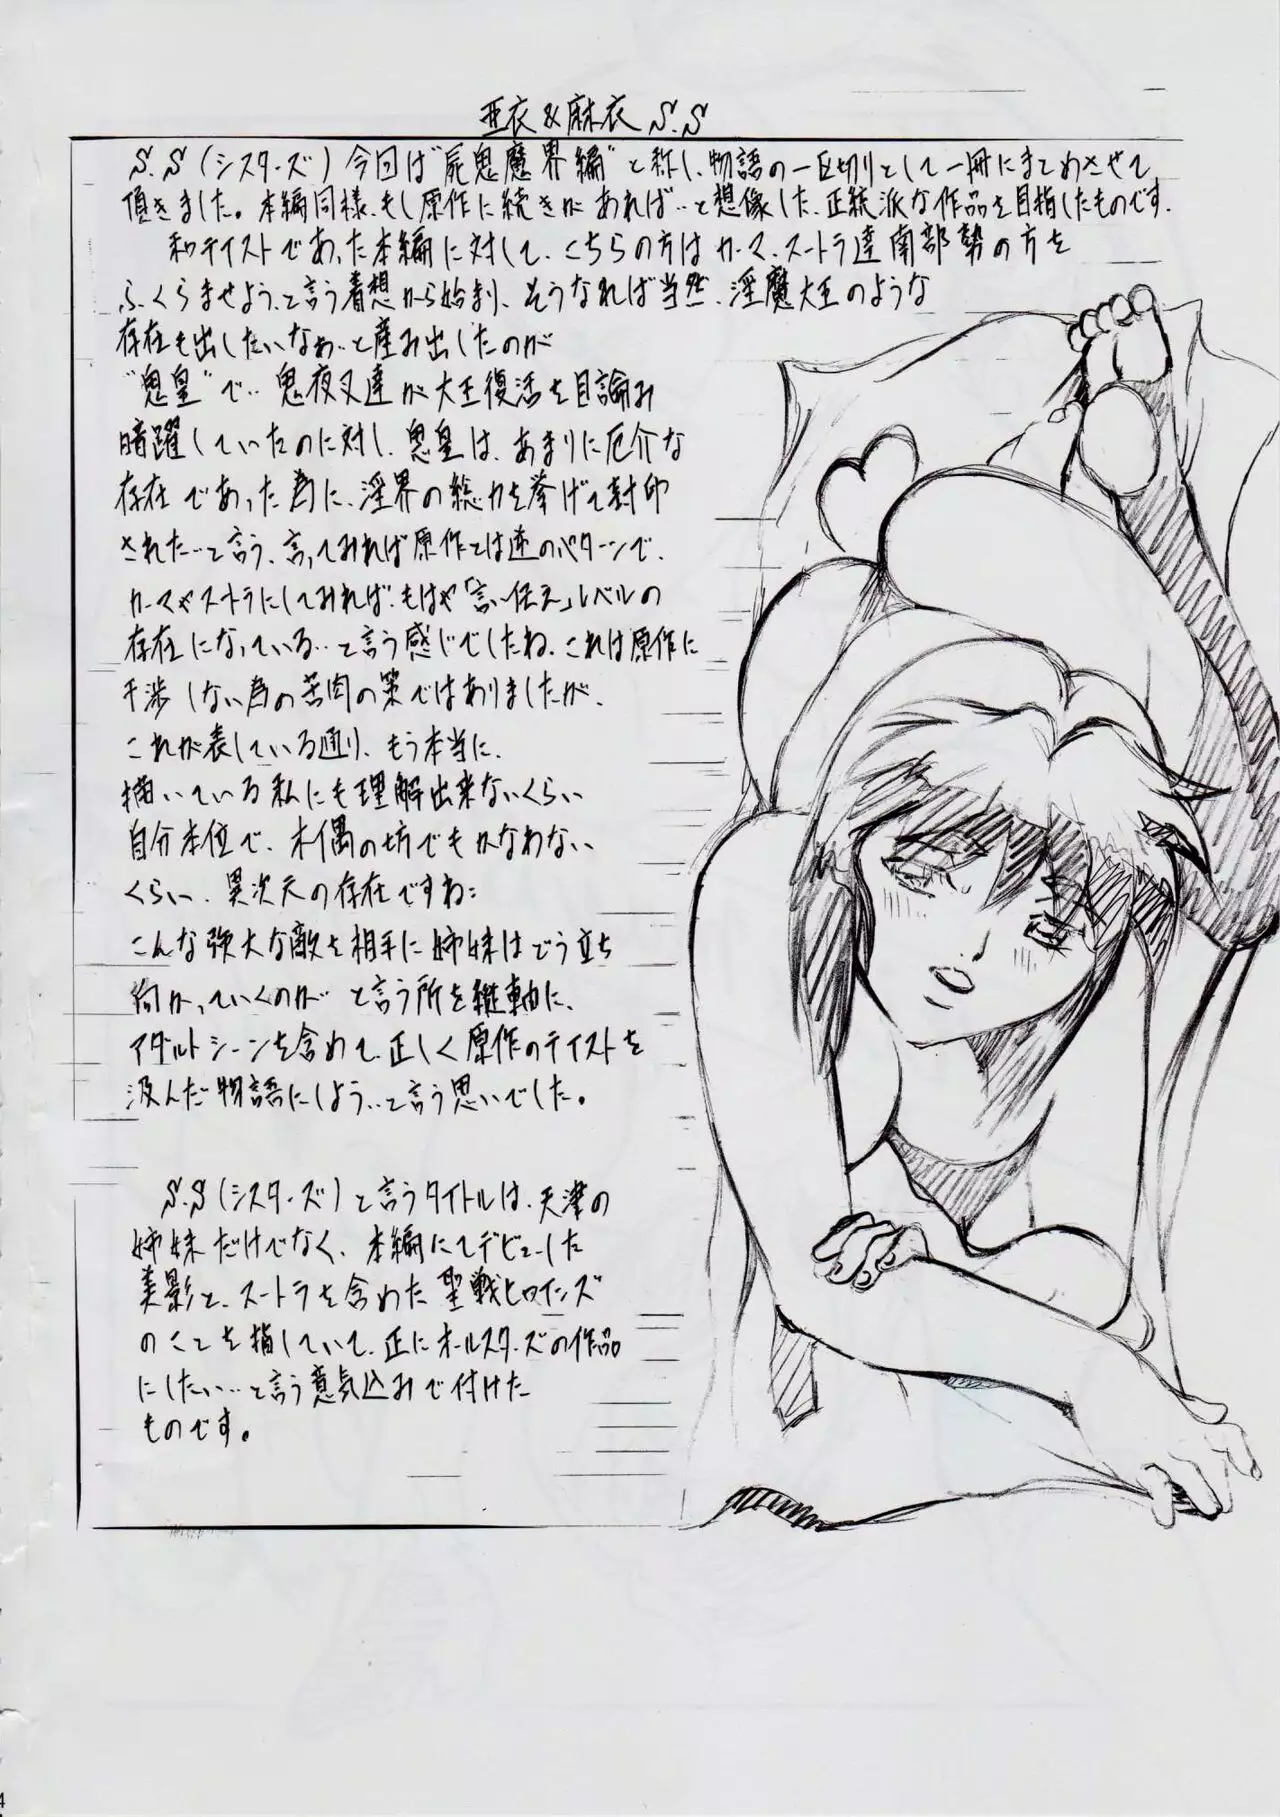 亜衣&麻衣 S.S
S.S(シスターズ)今回は"屍鬼魔界編"と称し、物語の一区切りとして一冊にまとめさせて
頂きました。本編同様、もし原作に続きがあれば…と想像した、正統派な作品を目指したものです。
和テイストであった本編に対して、こちらの方はカーマ、スートラ達南部勢の方を
ふくらませよう、と言う着想から始まり、そうなれば当然、淫魔大王のような
存在も出したいなぁ…と産み出したのが
"鬼皇"で… 鬼夜叉達が大王復活を目論み
暗躍していたのに対し、鬼皇は、あまりに厄介な
存在であった為に、淫界の総力を挙げて封印
された…と言う、言ってみれば原作とは逆のパターンで、
カーマやスートラにしてみれば、もはや「言い伝え」レベルの
存在になっている…と言う感じでしたね、これは原作に
干渉しない為の苦肉の策ではありましたが、
これが表している通り、もう本当に、
描いている私にも理解出来ないくらい
自分本位で、木偶の坊でもかなわない
くらい、異次元の存在ですね;
こんな強大な敵を相手に姉妹はどう立ち
向かっていくのか と言う所を縦軸に、
アダルトシーンを含めて、正しく原作のテイストを
汲んだ物語にしよう…と言う思いでした。
S.S(シスターズ)と言うタイトルは、天津の
姉妹だけでなく、本編にてデビューした
美影と、スートラを含めた聖戦ヒロインズ
のことを指していて、正にオールスターズの作品
にしたい…と言う意気込みで付けた
ものです。
4